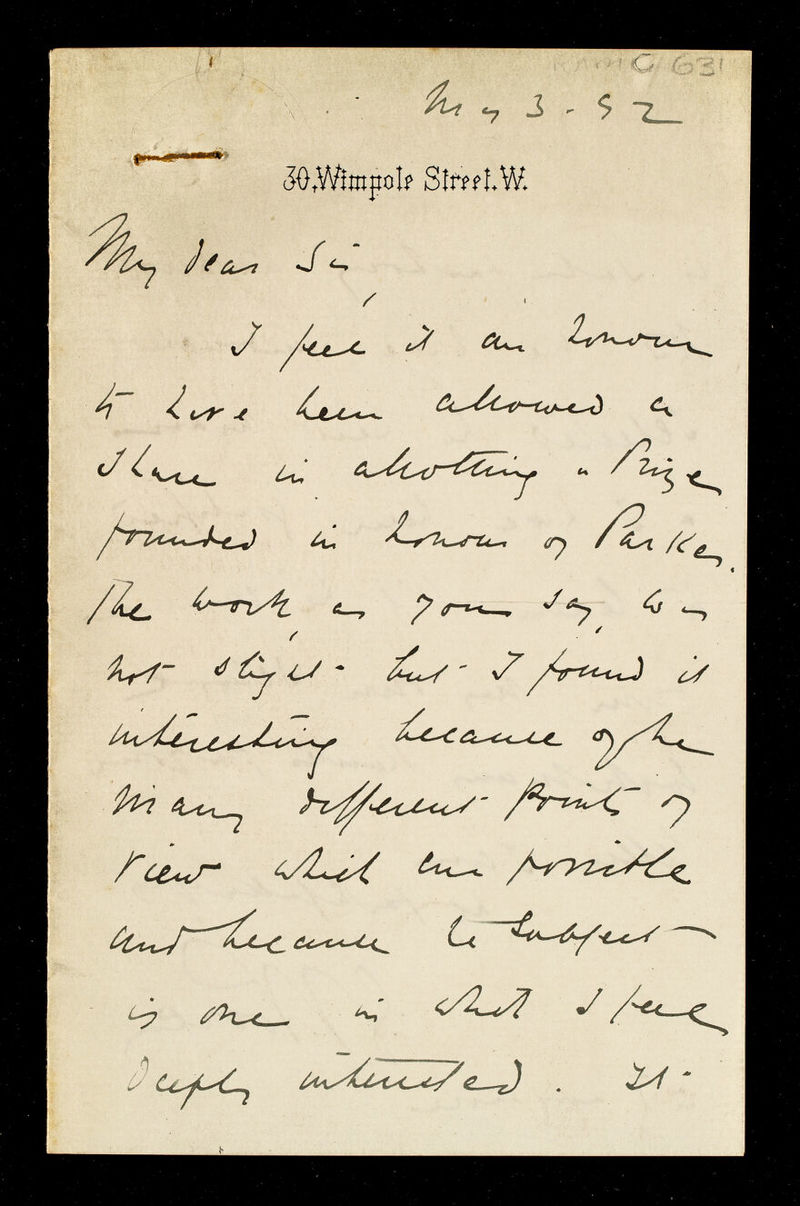 RAMC 631
May 3. 92
30, Wimpole Street. W.
My dear Sir,
I feel it an honour
to have been allowed a
share in allotting a Prize
founded in honour of Parkes.
The work, as you say, was
not slight but I found it
interesting because of the
many different points of
view which are possible
and because the subject
is one in which I feel
deeply interested. It